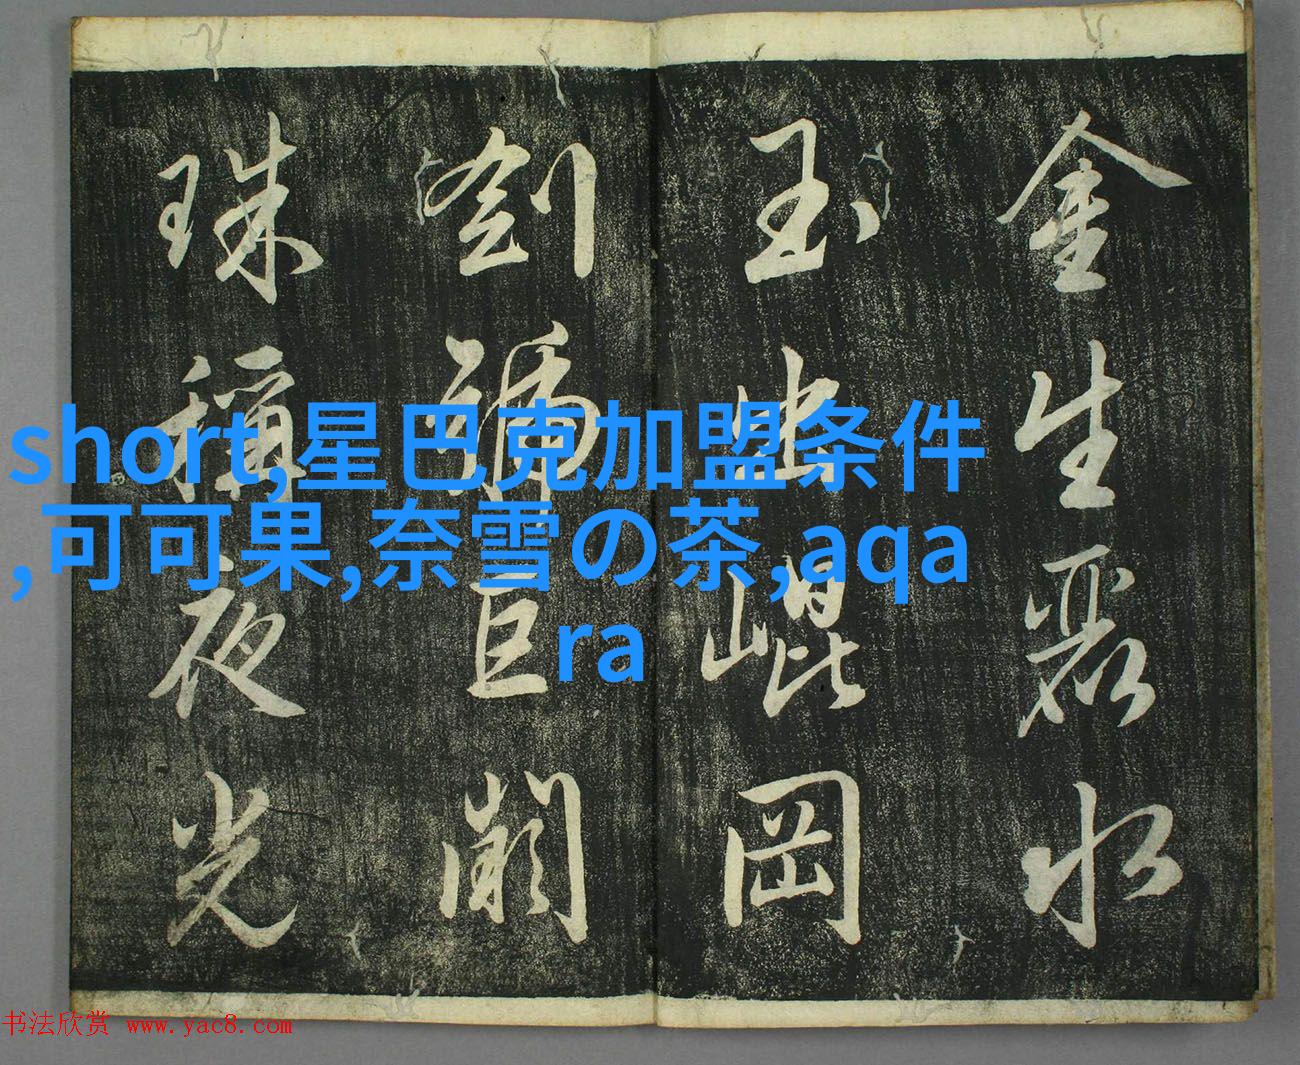 金生麗水
玉出崐岡
劍號巨闕
珠稱夜光
short,星巴克加盟条件
,可可果,奈雪の茶,aqa
ra
书法欣赏 www.yac8.com